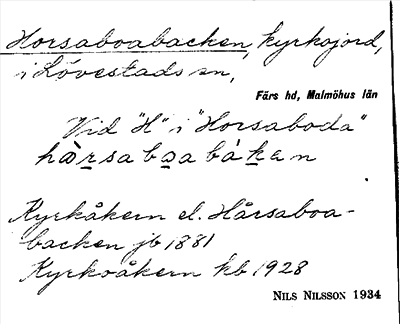 Horsaboabacken, kyrkojord,
i Lövestads sn,
Färs hd, Malmöhus län
Vid "H" i "Horsaboda"
hòrsaboabàkan
Kyrkåkern el. Hårsaboa-
backen jb 1881
Kyrkoåkern kb 1928
NILS NILSSON 1934